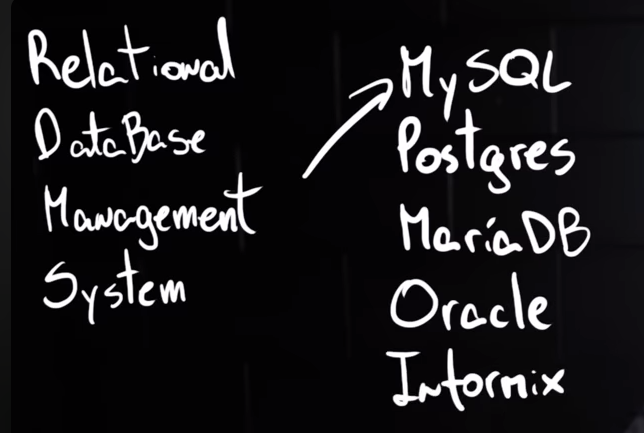 Relational
DataBase
Management
System
MySQL
Postgres
MariaDB
Oracle
Informix